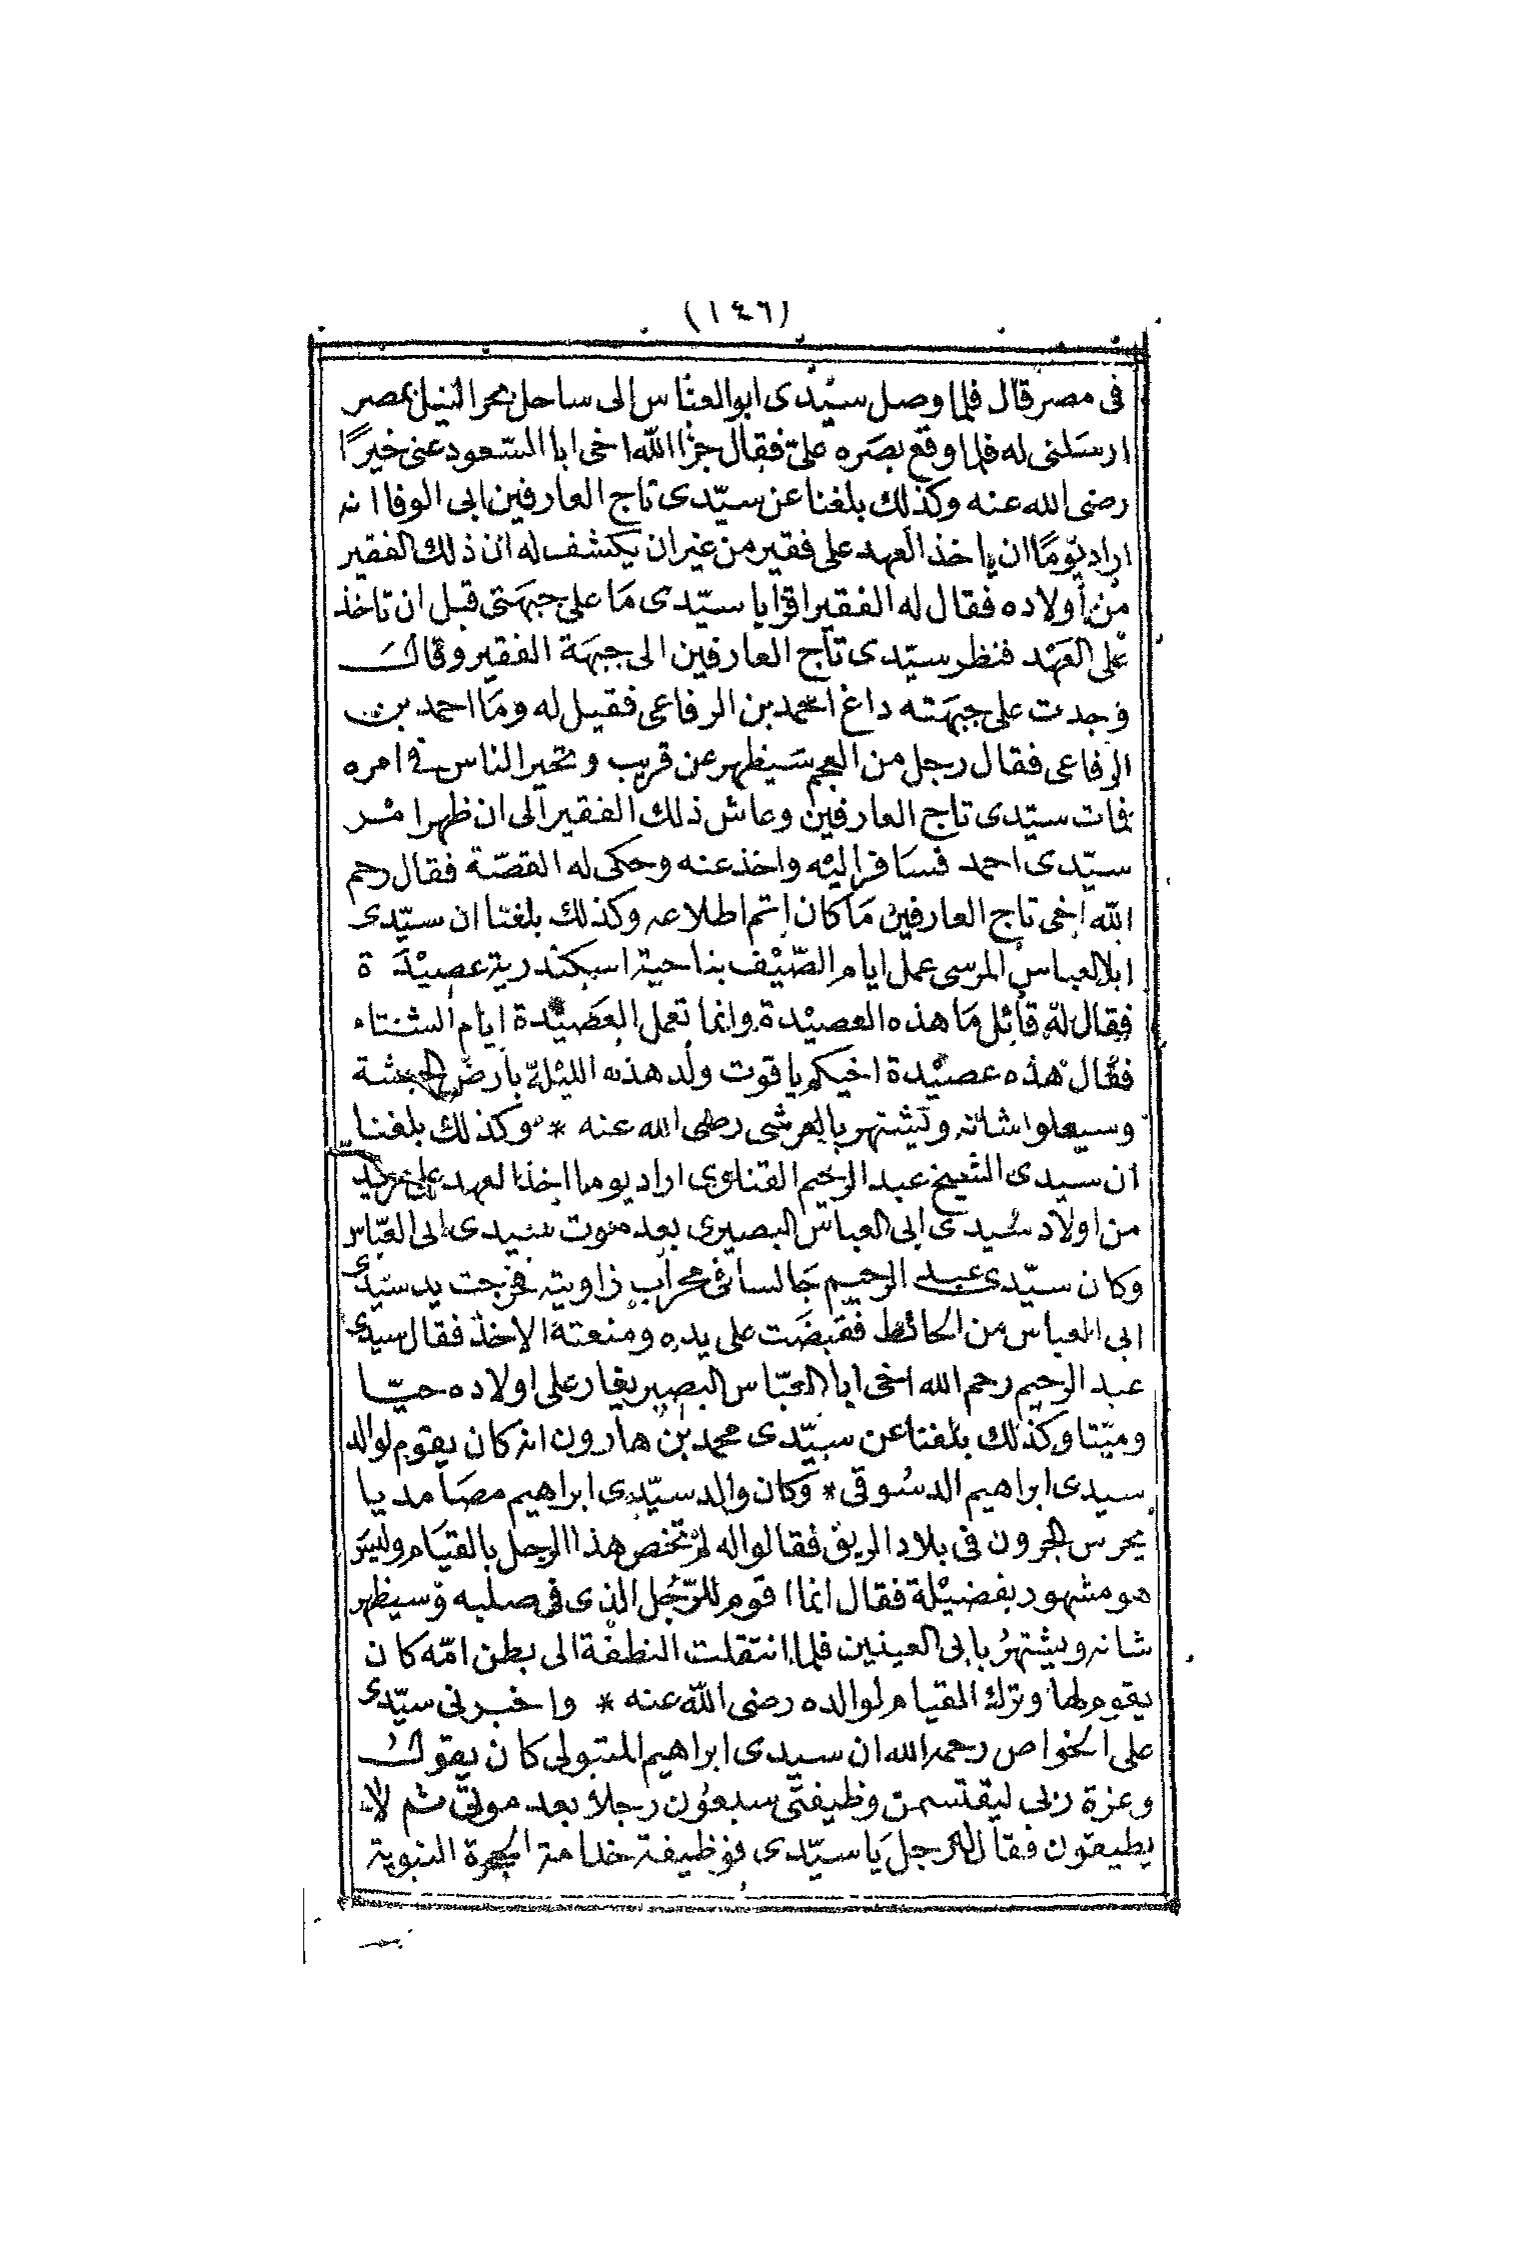 (١٤٦)
فى مصر قال فلما وصل سيّدى ابو العبّاس الى ساحل بحر النيل بمصر
ارسَلنى له فلما وقع بصَره علىّ فقال جزا الله اخى ابا السّعود عنى خيرًا
رضى الله عنه وكذلك بلغنا عن سيّدى تاج العارفين ابى الوفا انه
اراد يَومًا ان ياخذ العهد على فقير من غير ان يكشف له ان ذلك الفقير
من أولاده فقال له الفقير اقرأ يا سيّدى مَا على جبهَتى قبل ان تاخذ
على العَهْد فنظر سيّدى تاج العارفين الى جبهَة الفقير وقال
وجدت على جبهَته داغ احمد بن الرفاعى فقيل له ومَا احمد بن
الرفاعى فقال رجل من العجم سَيظهر عن قريب وتحير الناس فى امره
فمات سيّدى تاج العارفين وعاش ذلك الفقير الى ان ظهر امْر
سيّدى احمد فسَافر اليْه واخذ عنه وحكى له القصّة فقال رحم
الله اخى تاج العارفين مَا كان اتم اطلاعه وكذلك بلغنا ان سيّدى
ابا العباس المرسى عمل ايام الصّيْف بناحية اسكندرية عصيْدَة
فقال له قائل مَا هذه العصيْدة وانما تعمل العَصيْدة ايام الشتاء
فقال هذه عصيْدة اخيكم ياقوت ولد هذه الليْلة بارض الحبشة
وسيعلوا شانه ويشتهر بالعرشى رضى الله عنه * وكذلك بلغنا
ان سيدى الشيخ عبد الرحيم القناوى اراد يوما اخذ العهد على مريد
من اولاد سيدى ابى العباس البصيرى بعد موت سيدى ابى العبّاس
وكان سيّدى عبد الرحيم جَالسا فى محراب زاويته فخرجت يد سيّدى
ابى العباس من الحائط فقبضَت على يده ومنعته الاخذ فقال سيدى
عبد الرحيم رحم الله اخى ابا العبّاس البصير يغار على اولاده حيّا
وميّتا وكذلك بلغنا عن سيّدى محمد بن هارون انه كان يقوم لوالد
سيدى ابراهيم الدسُوقى * وكان والد سيّدى ابراهيم مصَامديا
يحرس الجرون فى بلاد الريف فقالوا له لم تخص هذا الرجل بالقيَام وليس
هو مشهور بفضيْلة فقال انما اقوم للرّجُل الذى فى صلبه وسيظهر
شانه ويشتهرُ بابى العينين فلما انتقلت النطفة الى بطن امّه كان
يقوم لها وترك القيام لوالده رضى الله عنه * واخبرنى سيّدى
على الخواص رحمه الله ان سيدى ابراهيم المتبولى كان يقول
وعزة ربى ليقتسمن وظيفتى سبعُون رجلا بعد موتى ثم لا
يطيقون فقال له رجل يَا سيّدى فوظيفة خدامة الحجرة النبوية